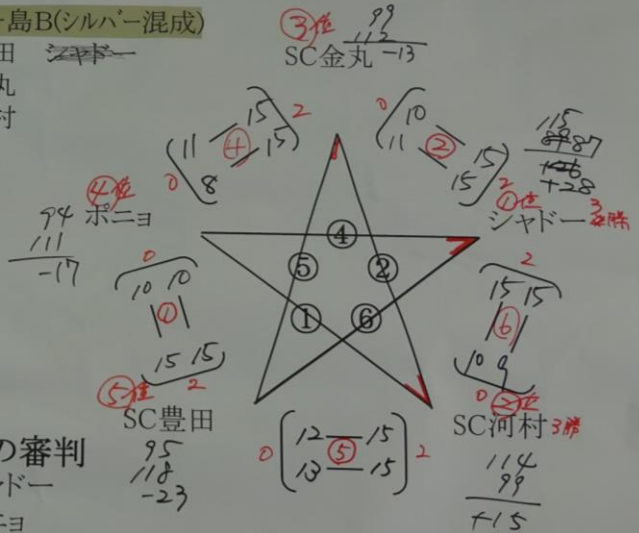 島B(シルバー混成)
田 シャドー
丸
村
③位 99
112
SC金丸 -13
2
15
11 ④ 15
0 8
0
10
11 ② 15
15
2
115
87
+28
①位
シャドー 3勝
④位
ポニョ
94
111
-17
④
⑤ ②
① ⑥
0
10 10
①
15 15
2
2
15 15
⑥
10 9
0
⑤位
SC豊田
95
118
-23
0 12 15 2
⑤
13 15
②位
SC河村 3勝
114
99
+15
の審判
ドー
ニョ